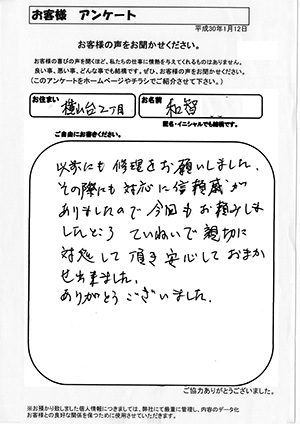 お客様 アンケート
平成30年1月12日
お客様の声をお聞かせください。
お客様の喜びの声を聞くほど、私たちの仕事に情熱を与えてくれるものはありません。
良い事、悪い事、どんな事でも結構です。ぜひ、お客様の声をお聞かせください。
(このアンケートをホームページやチラシでご紹介させて下さい。)
お住まい 横山台2丁目 お名前 和智
匿名・イニシャルでも結構です。
ご自由にお書きください。
以前にも修理をお願いしました。
その際にも対応に信頼感が
ありましたので今回もお頼みしま
したところ ていねいで親切に
対処して頂き安心しておまか
せ出来ました。
ありがとうございました。
ご協力ありがとうございました。
※お預かり致しました個人情報につきましては、弊社にて厳重に管理し、内容のデータ化
お客様との良好な関係を保つために使用させていただきます。